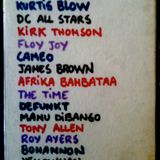 KURTIS BLOW
DC ALL STARS
KIRK THOMSON
FLOY JOY
CAMEO
JAMES BROWN
AFRIKA BAHBATAA
THE TIME
DEFUNKT
MANU DIBANGO
TONY ALLEN
ROY AYERS
BOHANNON